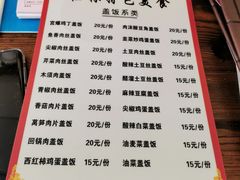 美食
盖饭系类
宫爆鸡丁盖饭 20元/份
鱼香肉丝盖饭 20元/份
尖椒肉丝盖饭 20元/份
芹菜肉丝盖饭 20元/份
木须肉盖饭 20元/份
青椒肉丝盖饭 20元/份
蒜苔肉丝盖饭 20元/份
香菇肉片盖饭 20元/份
莴笋肉片盖饭 20元/份
回锅肉盖饭 20元/份
西红柿鸡蛋盖饭 15元/份
肉沫酸豆角盖饭 20元/份
韭菜炒鸡蛋盖饭 20元/份
土豆肉丝盖饭 20元/份
酸辣土豆丝盖饭 15元/份
醋溜土豆丝盖饭 15元/份
麻辣豆腐盖饭 15元/份
尖椒鸡蛋盖饭 15元/份
酸辣白菜盖饭 15元/份
油麦菜盖饭 15元/份
油菜盖饭 15元/份